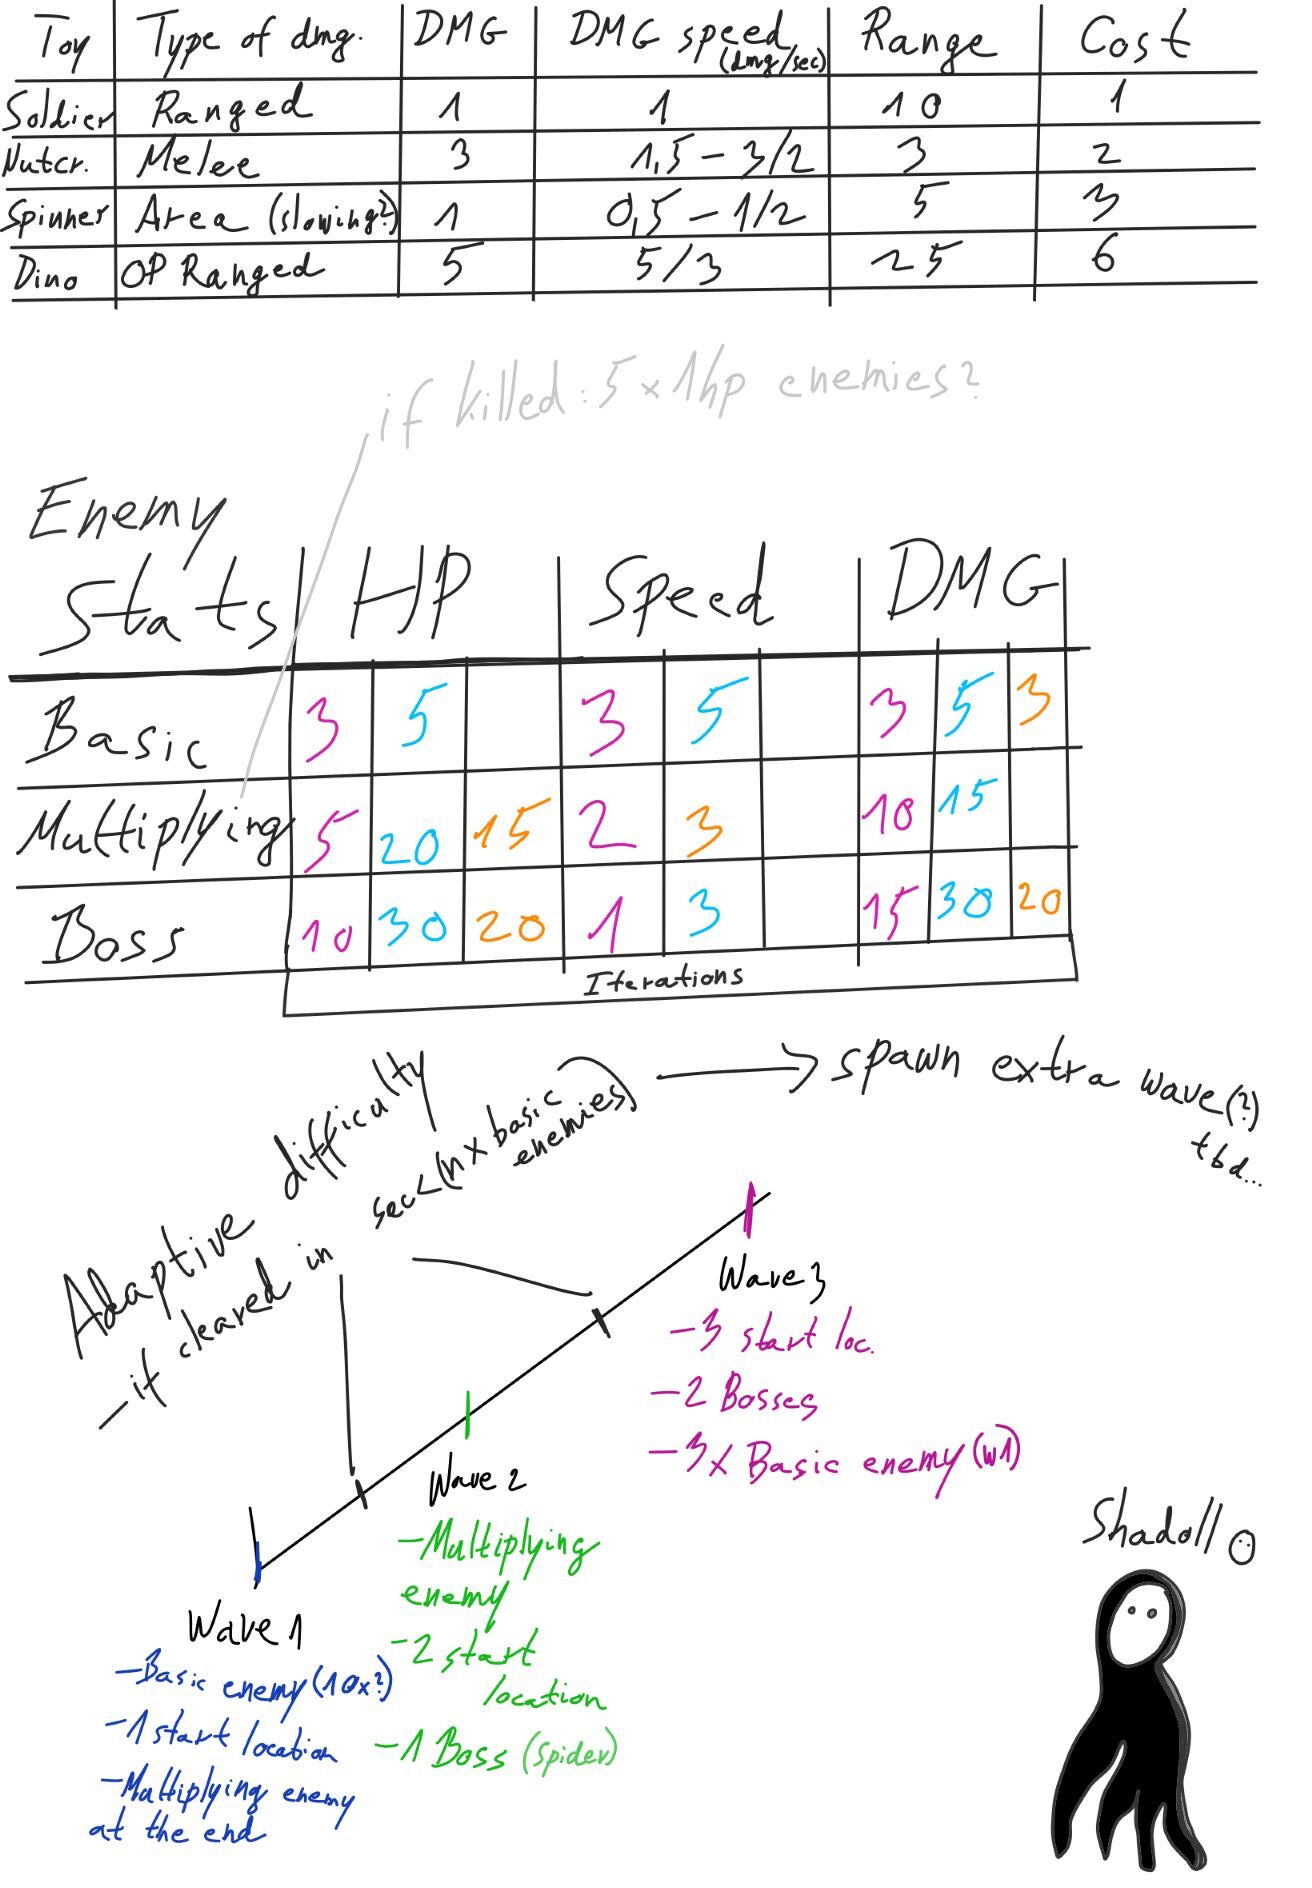 Toy Type of dmg. DMG DMG speed (dmg/sec) Range Cost
Soldier Ranged 1 1 10 1
Nutcr. Melee 3 1,5 - 3/2 3 2
Spinner Area (slowing?) 1 0,5 - 1/2 5 3
Dino OP Ranged 5 5/3 25 6
if killed: 5 x 1hp enemies?
Enemy
Stats HP Speed DMG
Basic 3 5 3 5 3 5 3
Multiplying 5 20 15 2 3 10 15
Boss 10 30 20 1 3 15 30 20
Iterations
Adaptive difficulty
- if cleared in sec < (n x basic
enemies)
spawn extra wave(?)
tbd...
Wave 3
- 3 start loc.
- 2 Bosses
- 3x Basic enemy (w1)
Wave 2
- Multiplying
enemy
- 2 start
location
- 1 Boss (spider)
Wave 1
- Basic enemy (10x?)
- 1 start location
- Multiplying enemy
at the end
Shadoll